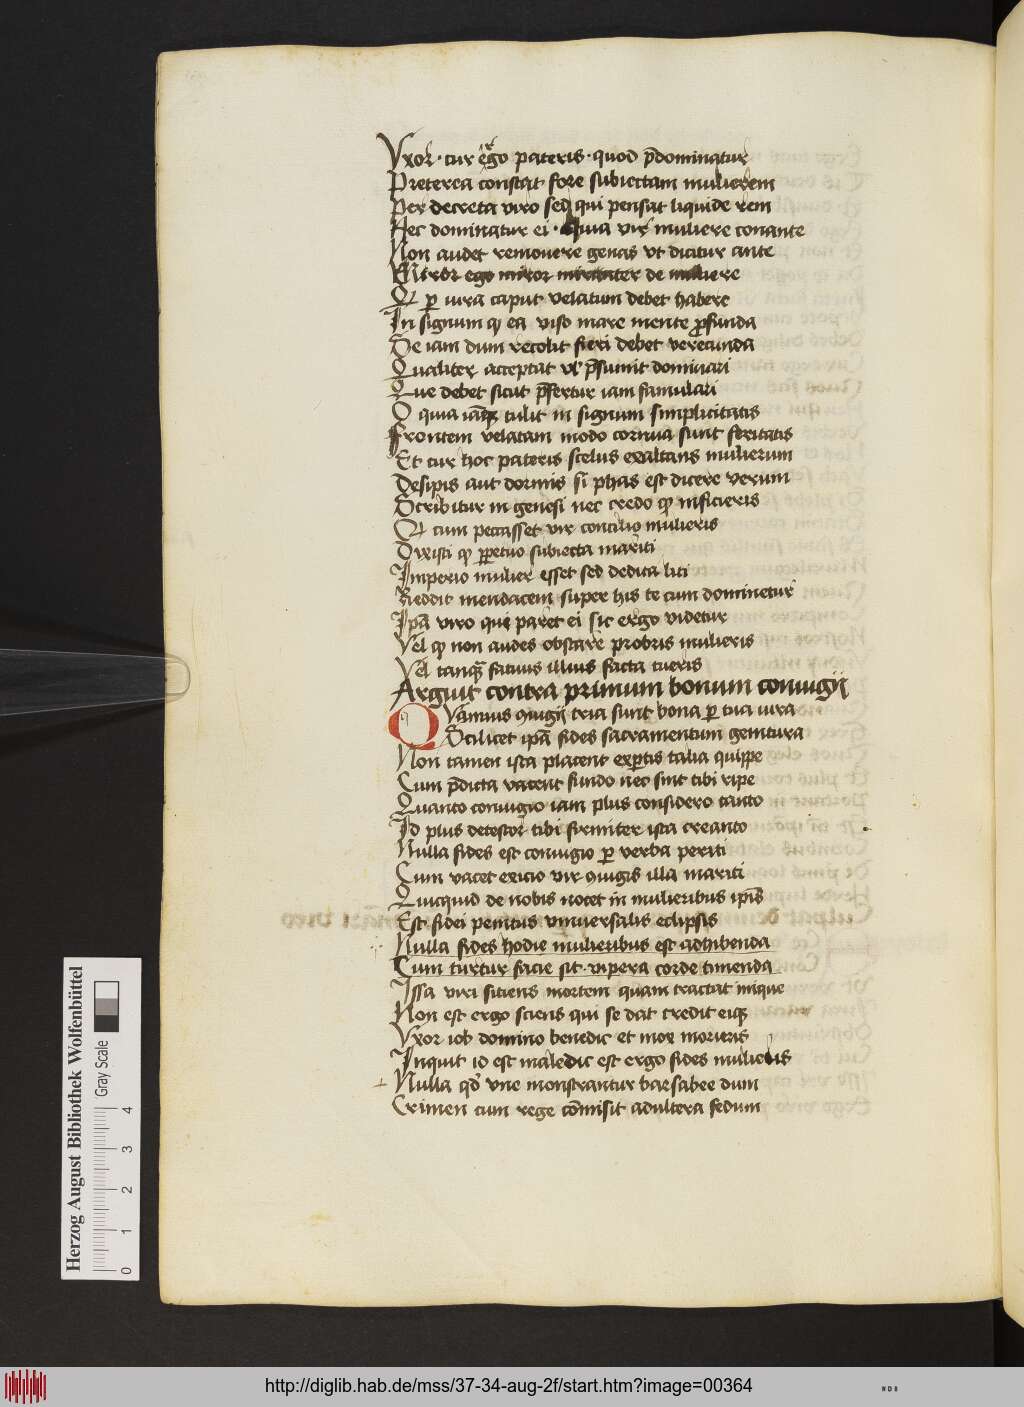 Uxor · cur ergo pateris · quod p̄dominatur
Preterea constat fore subiectam mulierem
Per decreta viro sed qui pensat liquide rem
Hec dominatur ei · Quia vir muliere conante
Non audet removere genas vt dicitur ante
Miror ego miror miranter de muliere
Q ꝑ iura caput velatum debet habere
In signum ꝙ ea viso mare mente ꝓfunda
De iam dum recolit fieri debet verecunda
Qualiter acceptat vl p̄sumit dominari
Que debet sicut p̄fertur iam famulari
O quia iāqꝫ tulit in signum simplicitatis
Frontem velatam modo cornua sunt feritatis
Et cur hoc pateris scelus exaltans mulierum
Desipis aut dormis si phas est dicere verum
Scribitur in genesi nec credo ꝙ inficieris
Q cum peccasset vir concilio mulieris
Dixisti ꝙ ꝑpetuo subiecta mariti
Imperio mulier esset sed dedita liti
Reddit mendacem super his te cum dominetur
Ipā viro qui paret ei sic ergo videtur
Vel ꝙ non audes obstare probris mulieris
Vel tanqꝫ fatuus illius facta tueris
Arguit contra primum bonum coniugij
Quamuis ꝯiugij tria sunt bona ꝑ tua iura
Scilicet ipā fides sacramentum genitura
Non tamen ista placent exꝑtis talia quippe
Cum p̄dicta vacent fundo nec sint tibi ripe
Quanto coniugio iam plus considero tanto
Id plus detestor tibi firmiter ista creanto
Nulla fides est coniugio ꝑ verba periti
Cum vacet exicio vir ꝯiugis illa mariti
Quicquid de nobis nocet in mulieribus ip̄is
Est fidei penitus vniuersalis eclipsis
Nulla fides hodie mulieribus est adhibenda
Cum turtur facie sit · vipera corde timenda
Ipsa viri sitiens mortem quam tractat inique
Non est ergo sciens qui se dat credit eiqꝫ
Vxor iob domino benedic et mox morieris
Inquit id est maledic est ergo fides mulieris
Nulla qd̄ vne monstrantur barsabee dum
Crimen cum rege cōmisit adultera fedum
Herzog August Bibliothek Wolfenbüttel
Gray Scale
0 1 2 3 4
http://diglib.hab.de/mss/37-34-aug-2f/start.htm?image=00364